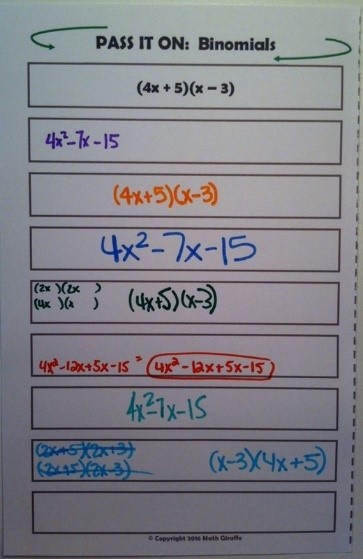 PASS IT ON: Binomials
(4x + 5)(x – 3)
4x²-7x-15
(4x+5)(x-3)
4x²-7x-15
(2x )(2x )
(4x )(x ) (4x+5)(x-3)
4x²-12x+5x-15 = 4x²-12x+5x-15
4x²-7x-15
(2x+5)(2x+3)
(2x+5)(2x-3) (x-3)(4x+5)
© Copyright 2016 Math Giraffe